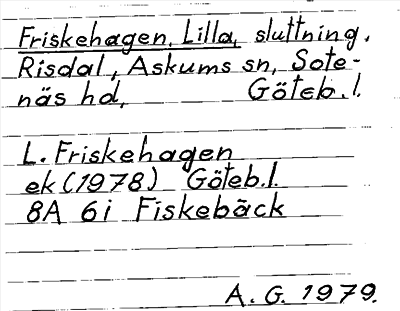 Friskehagen, Lilla, sluttning,
Risdal, Askums sn, Sote-
näs hd, Göteb.l.
L. Friskehagen
ek (1978) Göteb.l.
8A 6i Fiskebäck
A. G. 1979.